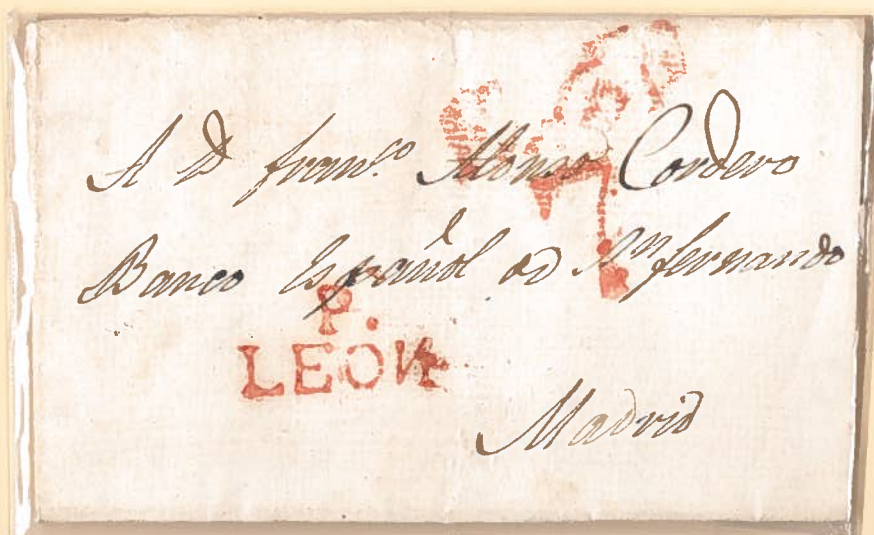 A D franco Alonso Cordero
Banco Español de Sn fernando
P.
LEON
Madrid